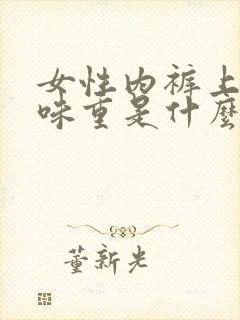 女性内裤上
味重是什麼
董新光